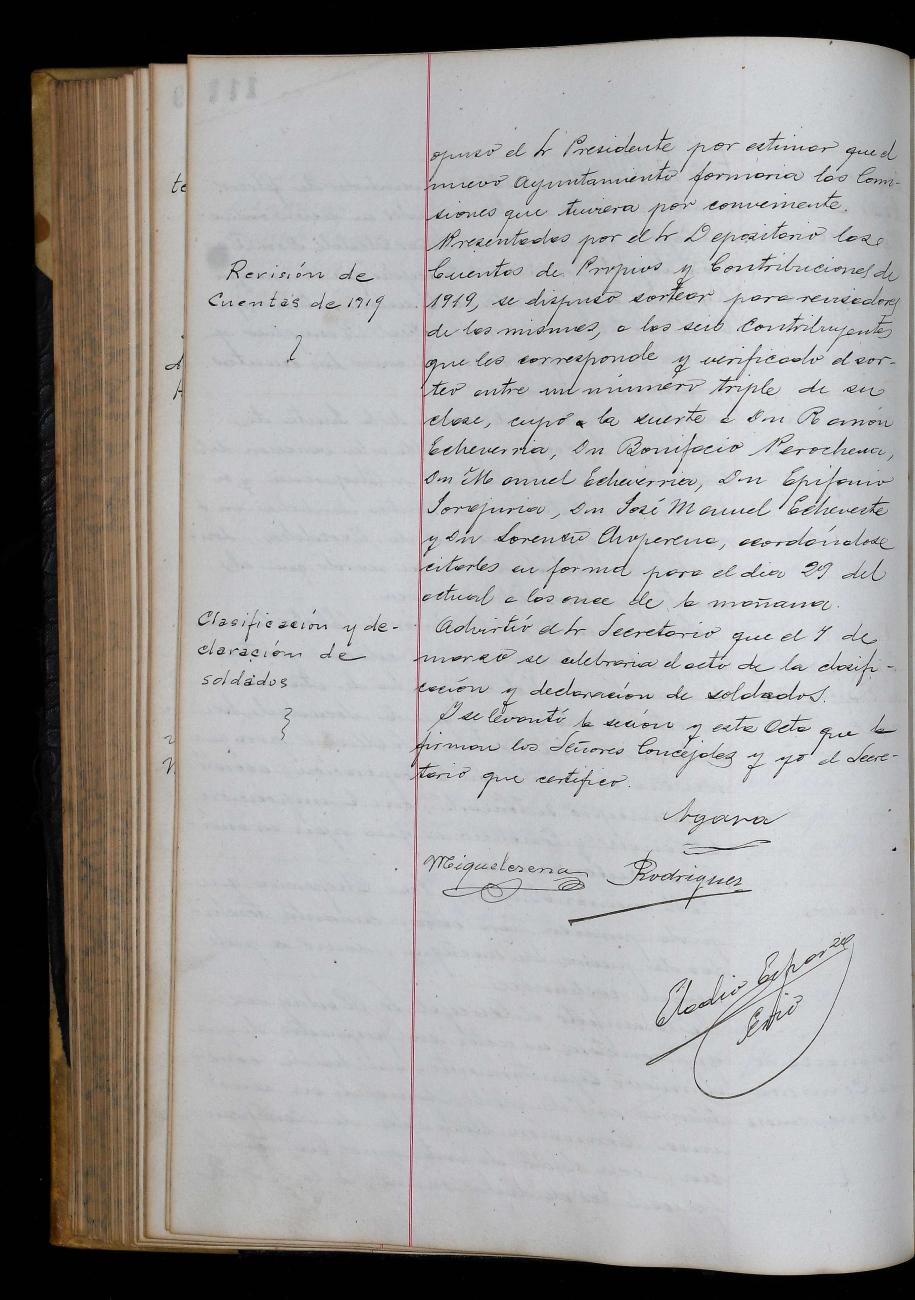 opuso el Sr Presidente por estimar que el
nuevo Ayuntamiento formaria las Comi-
siones que tuviera por conveniente.
Revisión de
Cuentas de 1919
Presentadas por el Sr Depositario las
Cuentas de Propios y Contribuciones de
1919, se dispuso sortear para revisadores
de las mismas, a los seis contribuyentes
que les corresponde y verificado el sor-
teo entre un número triple de su
clase, cupó a la suerte a Dn Ramón
Echeverria, Dn Bonifacio Perochena,
Dn Manuel Echeverria, Dn Epifanio
Dn José Manuel Echeveste
y Dn Lorenzo Aroperena, acordándose
citarles en forma para el dia 29 del
actual a las once de la mañana.
Clasificación y de-
claración de
soldados
Advirtió el Sr Secretario que el 7 de
marzo se celebraria el acto de la clasifi-
cación y declaración de soldados.
Y se levantó la sesión y esta Acta que la
firman los Señores Concejales y yo el Secre-
tario que certifico.
Agara
Miguelezena Rodriguez
Eladio Esparza
Srio